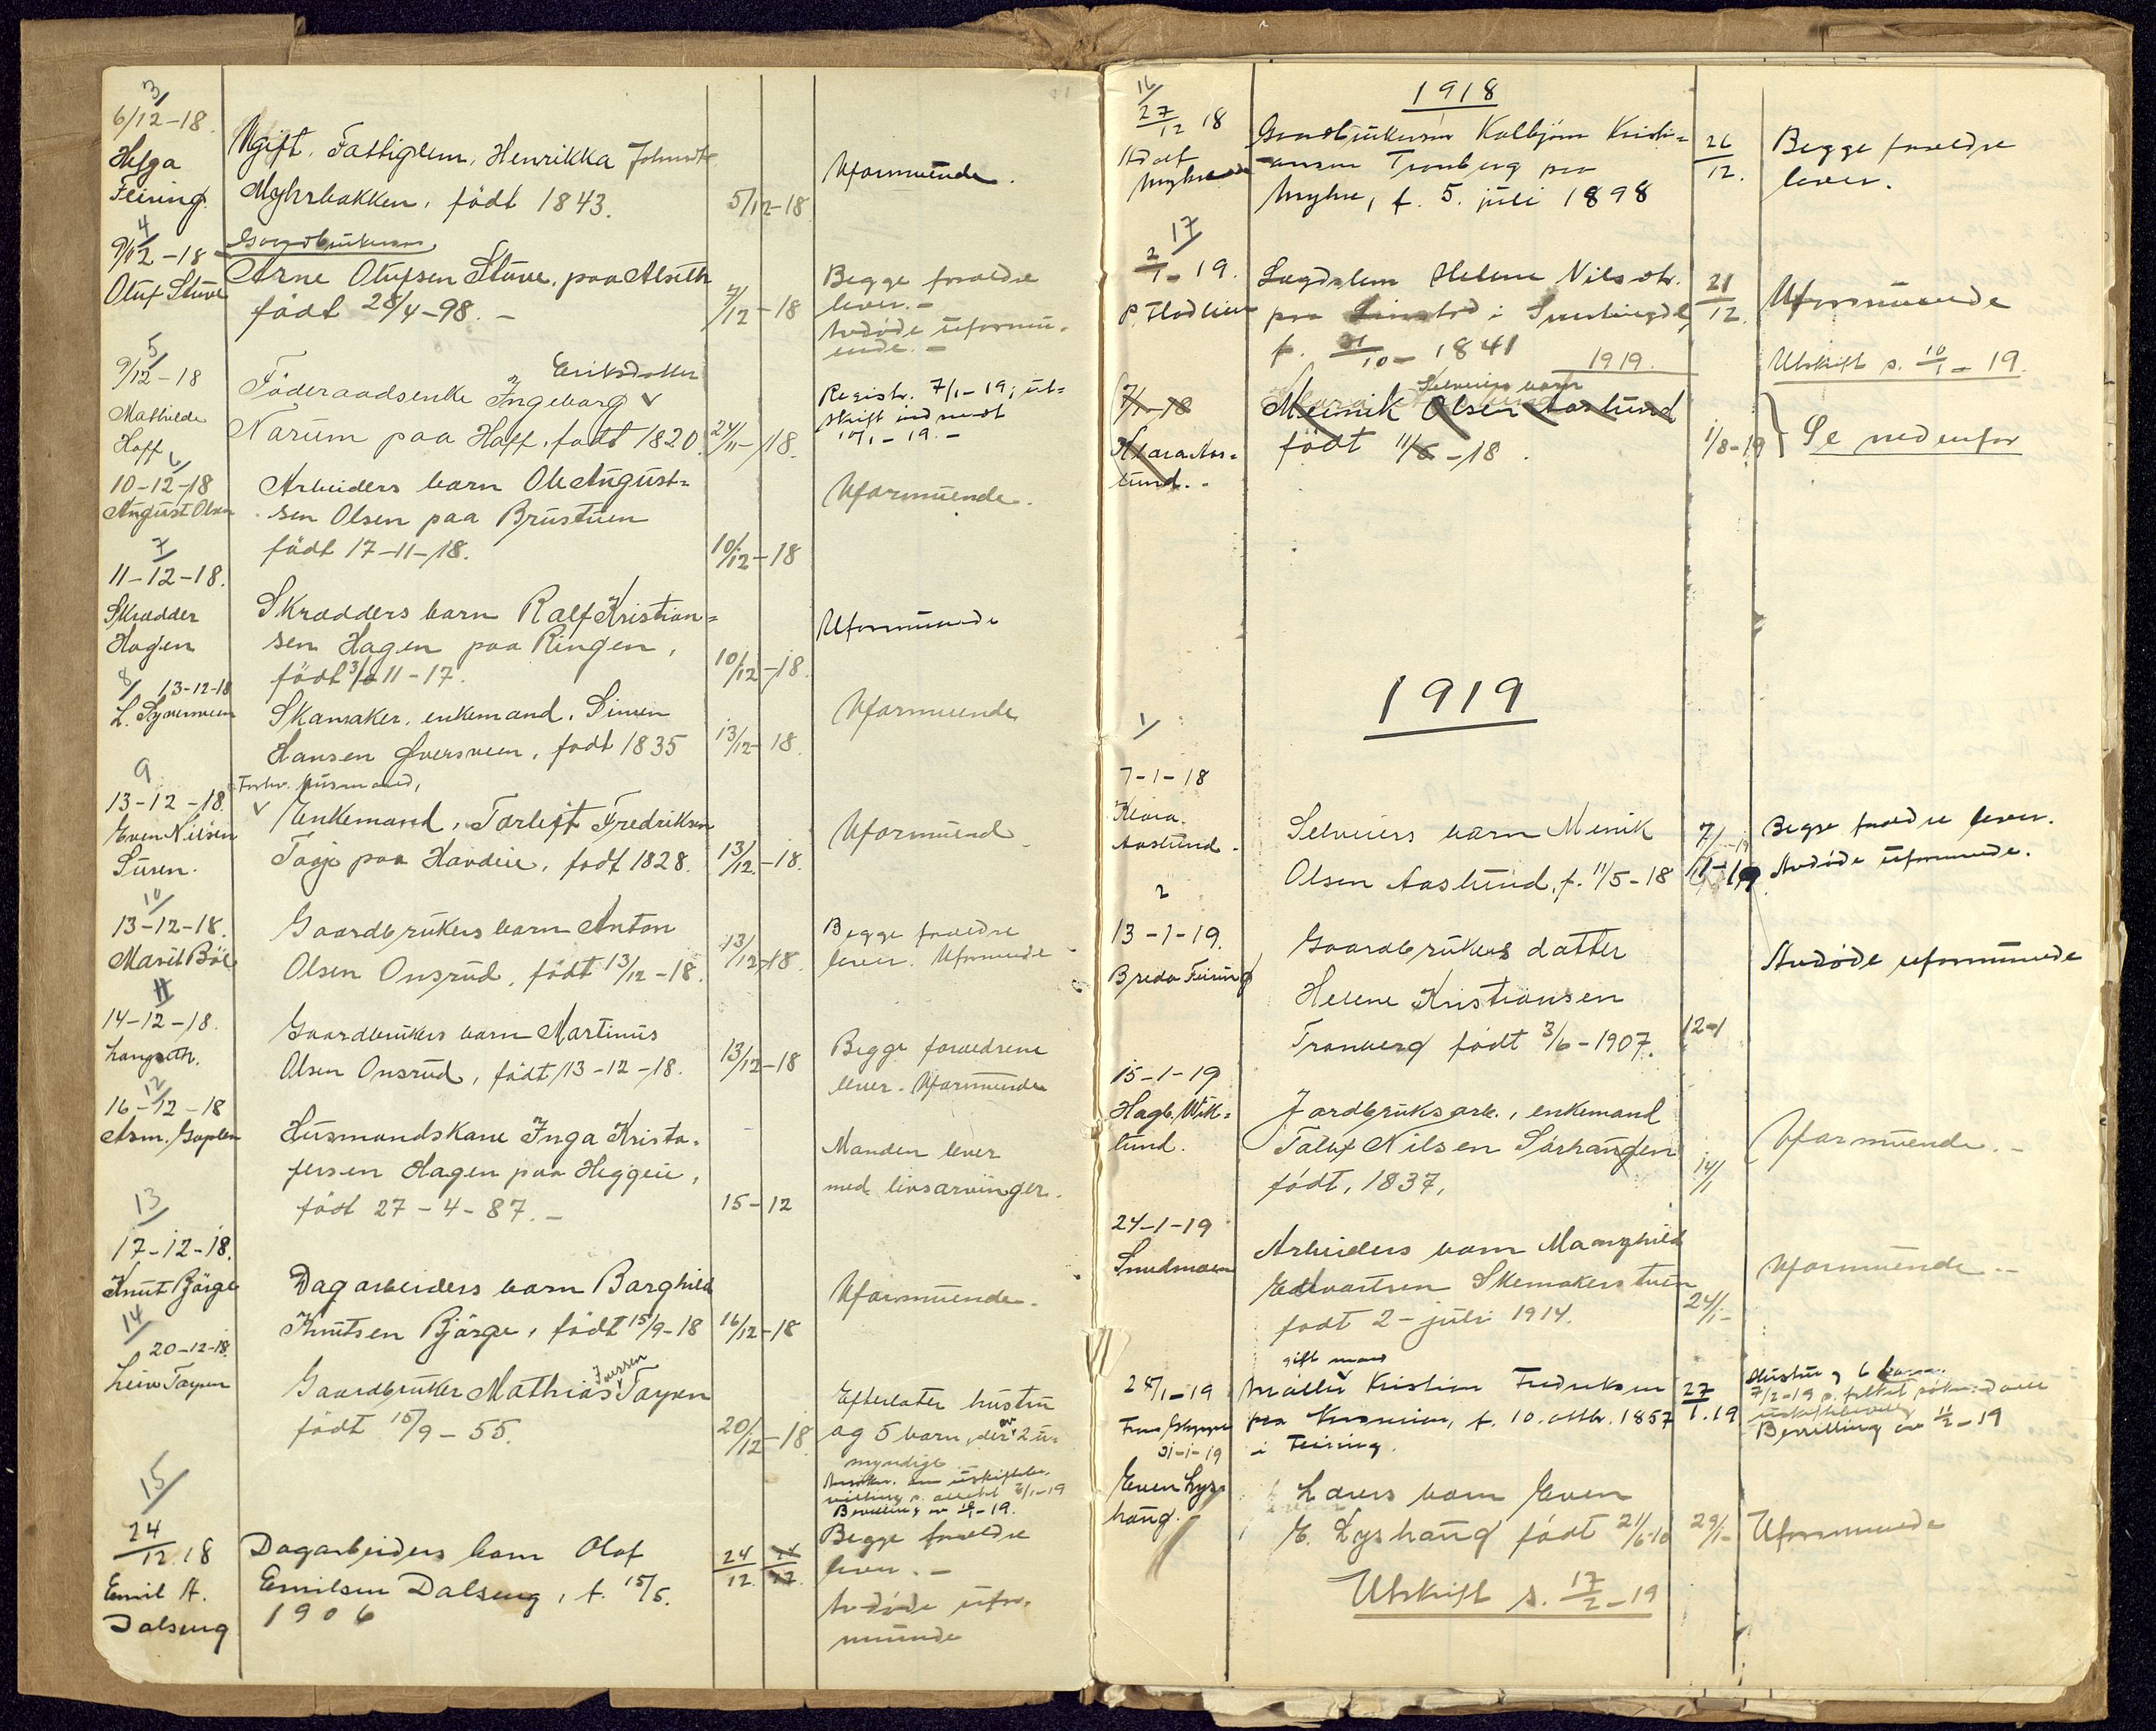 3/
6/12-18.
Helga
Feiring.
Ugift. Fattiglem, Henrikka
Myhrbakken, födt 1843.
5/12-18
Uformuende.
4/
9/12-18
Oluf Stuve
Gaardbrukersøn
Arne Olufsen Stuve, paa Alseth
födt 28/4-98. -
7/12-18
Begge foraeldre
lever. -
Avdøde uformu-
ende. -
5/
9/12-18
Mathilde
Hoff
Eriksdatter
Föderaadsenke Ingeborg ✓
Narum paa Hoff, födt 1820.
24/11-18.
Registr. 7/1-19; ut-
skrift indsendt
10/1-19. -
6/
10-12-18
August Olsen
Arbeiders barn Ole August-
sen Olsen paa Brustuen
födt 17-11-18.
10/12-18
Uformuende.
7/
11-12-18.
Skrædder
Hagen
Skrædders barn Ralf Kristian-
sen Hagen paa Ringen,
födt 3/11-17.
10/12-18.
Uformuende
8/ 13-12-18
L. Syversveen
Skomaker, enkemand, Simen
Hansen Sversveen, født 1835
13/12-18
Uformuende
9
13-12-18.
Even Nilsen
Suren.
Forhv. husmand,
✓ Enkemand, Torleif Fredriksen
Toje paa Havdeie, født 1828.
13/12.-18.
Uformuend
10/
13-12-18.
Marit Böe
Gaardbrukers barn Anton
Olsen Onsrud, födt 13/12-18.
13/12-18.
Begge foraeldre
lever. Uformuende
11
14-12-18.
Langseth.
Gaardbrukers barn Martinus
Olsen Onsrud, födt 13-12-18.
13/12-18
Begge foraeldrene
lever. Uformuende
12/
16-12-18
Asm. Goplen
Husmandskone Inga Kristo-
fersen Hagen paa Heggeie,
födt 27-4-87. -
15-12
Manden lever
med livsarvinger.
13/
17-12-18.
Knut Bjørge
Dagarbeiders barn Borghild
Knutsen Bjørge, födt 15/9-18
16/12-18
Uformuende.
14/
20-12-18.
Gaardbruker Mathias
födt 15/9-55.
20/12-18.
Efterlater hustru
og 5 barn, der av 2 u-
myndige
Bevilling av
15/
24/12 18
Emil A.
Dalseng
Dagarbeiders barn Olaf
Emilsen Dalseng, f. 15/5.
1906
24/12. 24/12
Begge foraeldre
lever. -
Avdøde ufor-
muende
1918
16/
27/12 18
Adolf
Myhre
Gaardbrukersøn Kolbjørn Kristi-
ansen Tronberg paa
Myhre, f. 5. juli 1898
26/12.
Begge foraeldre
lever.
17/
2/1-19.
P. Flodlien
Legdslem Helene Nilsdtr.
paa
f. 31/10-1841
21/12.
Uformuende
Utskrift s. 10/1-19.
1919.
7/1-18
Klara Aas-
lund. -
Selveiers barn
Meinik Olsen Aaslund
födt 11/5-18.
1/8-19
Se nedenfor
1919
1/
7-1-18
Klara.
Aaslund.
Selveiers barn Menik
Olsen Aaslund, f. 11/5-18
7/1-19
Begge foraeldre lever.
Avdøde uformuende.
2
13-1-19.
Breda Feiring
Gaardbrukers datter
Helene Kristiansen
Tronberg født 3/6-1907.
12-1
Avdøde uformuende
15-1-19
Hagb. Wik-
lund.
Jordbruksarb., enkemand
Taluf Nilsen Sørhaugen
født, 1837,
14/1
Uformuende. -
24-1-19
Smedmoen
Arbeiders barn Maanghild
Edvartsen Skomakerstuen
født 2-juli 1914.
24/1-
Uformuende. -
28/1-19
gift mand
Møller Kristian Fredriksen
f. 10. oktbr. 1857
i Feiring.
27/1.19
Hustru og 6 barn.
Bevilling av 11/2-19
31-1-19
Even Lys-
haug.
Lærers barn Even
E. Lyshaug født 21/6-10
29/1-
Uformuende
Utskrift s. 17/2-19